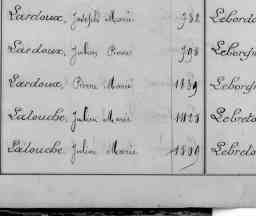 Lardoux, Joseph Marie 782 Lebord
Lardoux, Julien Pierre 798 Leborg
Lardoux, Pierre Marie 1889 Leborg
Latouche, Julien Marie 1028 Lebret
Latouche, Julien Marie 1880 Lebret